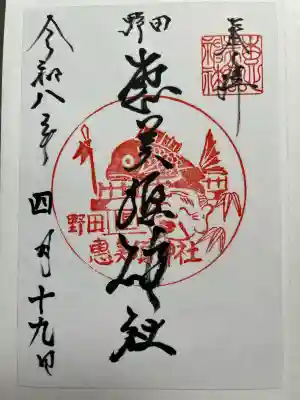 奉拝
野田
恵美須神社
野田
恵美須神社
令和八年
四月十九日